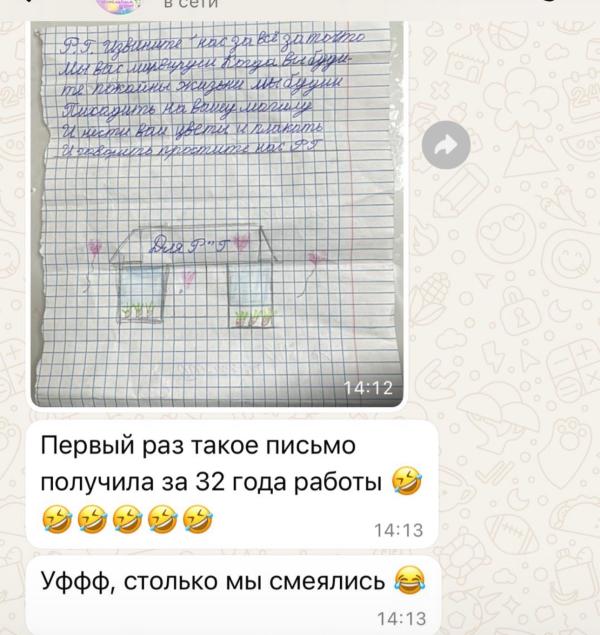 в сети
Р.Г. Извините нас за всё за то что
Мы вас мерзуем Когда вы буди-
те покойны жизьни мы будим
Писодить на вашу могилу
И нести вам цветы и плакать
И говорить простите нас Р.Г
Для Р"Г
14:12
Первый раз такое письмо
получила за 32 года работы 🤣
🤣🤣🤣🤣🤣
14:13
Уффф, столько мы смеялись 😂
14:13